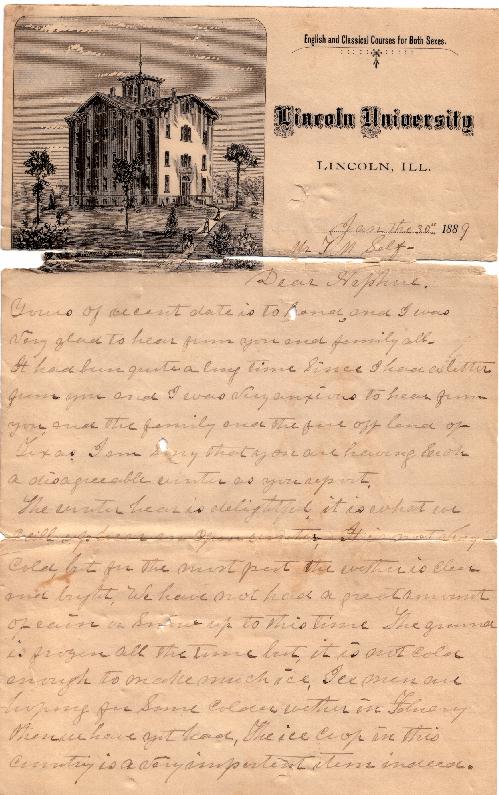 English and Classical Courses for Both Sexes.
Lincoln University
LINCOLN, ILL.
Jan the 30" 1889
Mr. T. N. Self-
Dear Nephue.
Yours of recent date is to hand, and I was
very glad to hear from you and family all.
It had bin quite a long time since I had a letter
from you and I was very anxious to hear from
you and the family and the fare off land of
Texas. I am sorry that you are having such
a disagreeable winter as you report.
The winter hear is delightful, it is what we
call up hear an open winter. It is not very
Cold but for the most part the wether is clear
and bright, We have not had a great amount
of rain or snow up to this time The ground
is frozen all the time but, it is not cold
enough to make much ice, Ice men are
hoping for some colder wether in Febuary
then we have yet had, The ice crop in this
Country is a very important item indeed.